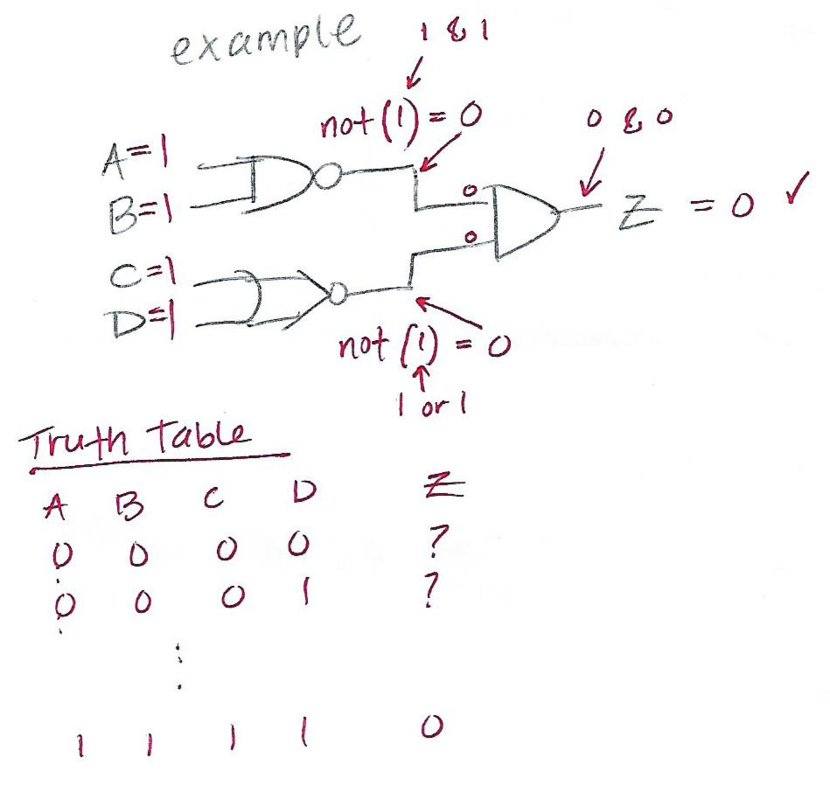 example
1 & 1
not (1) = 0
0 & 0
A=1
B=1
0
Z = 0 ✓
0
C=1
D=1
not (1) = 0
1 or 1
Truth Table
A B C D Z
0 0 0 0 ?
0 0 0 1 ?
⋮
1 1 1 1 0